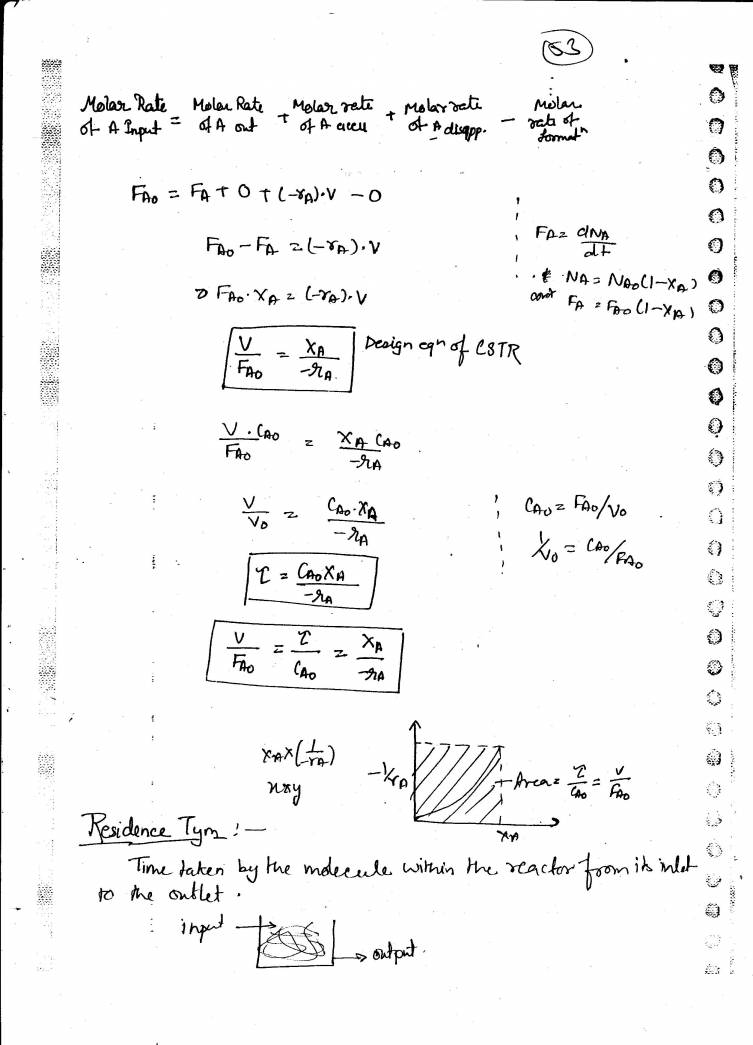 53
Molar Rate of A Input = Molar Rate of A out + Molar rate of A accu + Molar rate of A disapp. - Molar rate of formatⁿ
F_A0 = F_A + 0 + (-r_A).V - 0
F_A0 - F_A = (-r_A).V
F_A = dN_A/dt
N_A = N_A0(1-X_A)
⇒ F_A0 . X_A = (-r_A).V
F_A = F_A0(1-X_A)
V/F_A0 = X_A/-r_A.
Design eqⁿ of CSTR
V . C_A0/F_A0 = X_A C_A0/-r_A
V/V_0 = C_A0.X_A/-r_A
C_A0 = F_A0/V_0
1/V_0 = C_A0/F_A0
τ = C_A0 X_A/-r_A
V/F_A0 = τ/C_A0 = X_A/-r_A
X_A × (1/-r_A)
x × y
-1/r_A
Area = τ/C_A0 = V/F_A0
X_A
Residence Tym :-
Time taken by the molecule within the reactor from its inlet
to the outlet .
input
output .